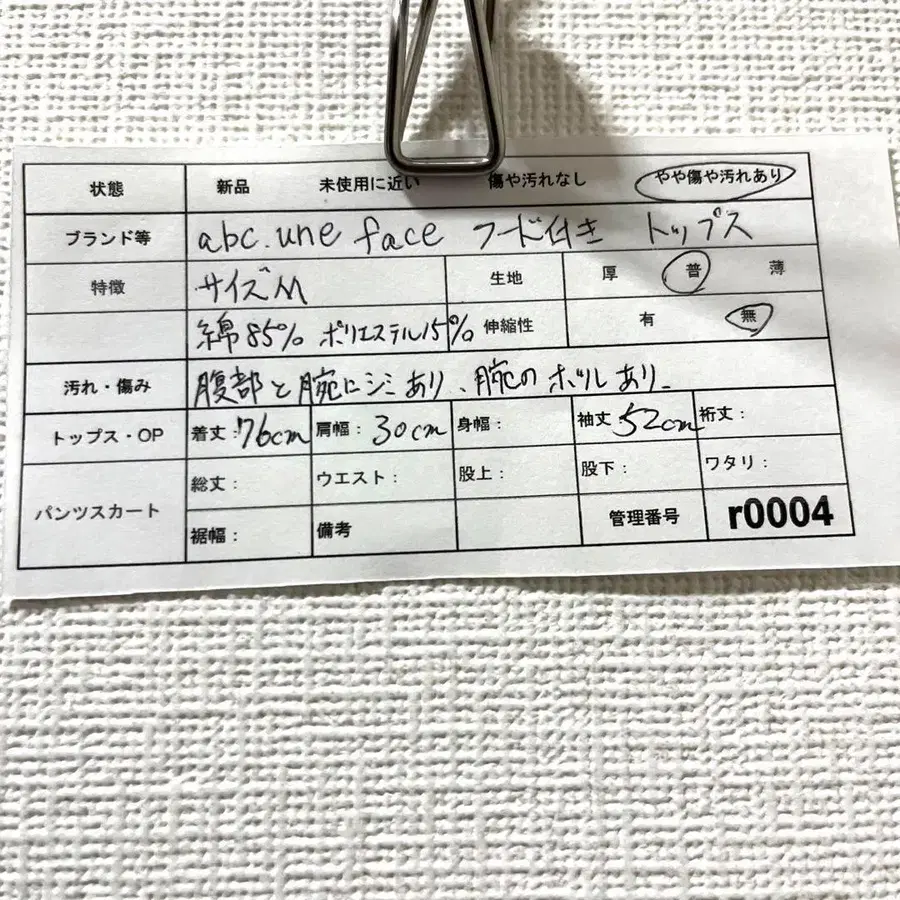 状態 新品 未使用に近い 傷や汚れなし やや傷や汚れあり
ブランド等 abc.une face フード付き トップス
特徴 サイズM 生地 厚 普 薄
綿85% ポリエステル15% 伸縮性 有 無
汚れ・傷み 腹部と腕にシミあり、腕のホツレあり。
トップス・OP 着丈:76cm 肩幅: 30cm 身幅: 袖丈 52cm 裄丈:
パンツスカート 総丈: ウエスト: 股上: 股下: ワタリ:
裾幅: 備考 管理番号 r0004